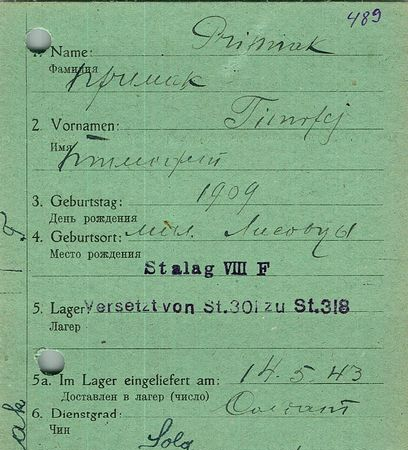 489
1. Name: Primak
Фамилия Примак
2. Vornamen: Timofej
Имя Тимофей
3. Geburtstag: 1909
День рождения
4. Geburtsort: Лисовцы
Место рождения
Stalag VIII F
5. Lager Versetzt von St.301 zu St.318
Лагер
5a. Im Lager eingeliefert am: 14.5.43
Доставлен в лагер (число)
6. Dienstgrad:
Чин
Sold